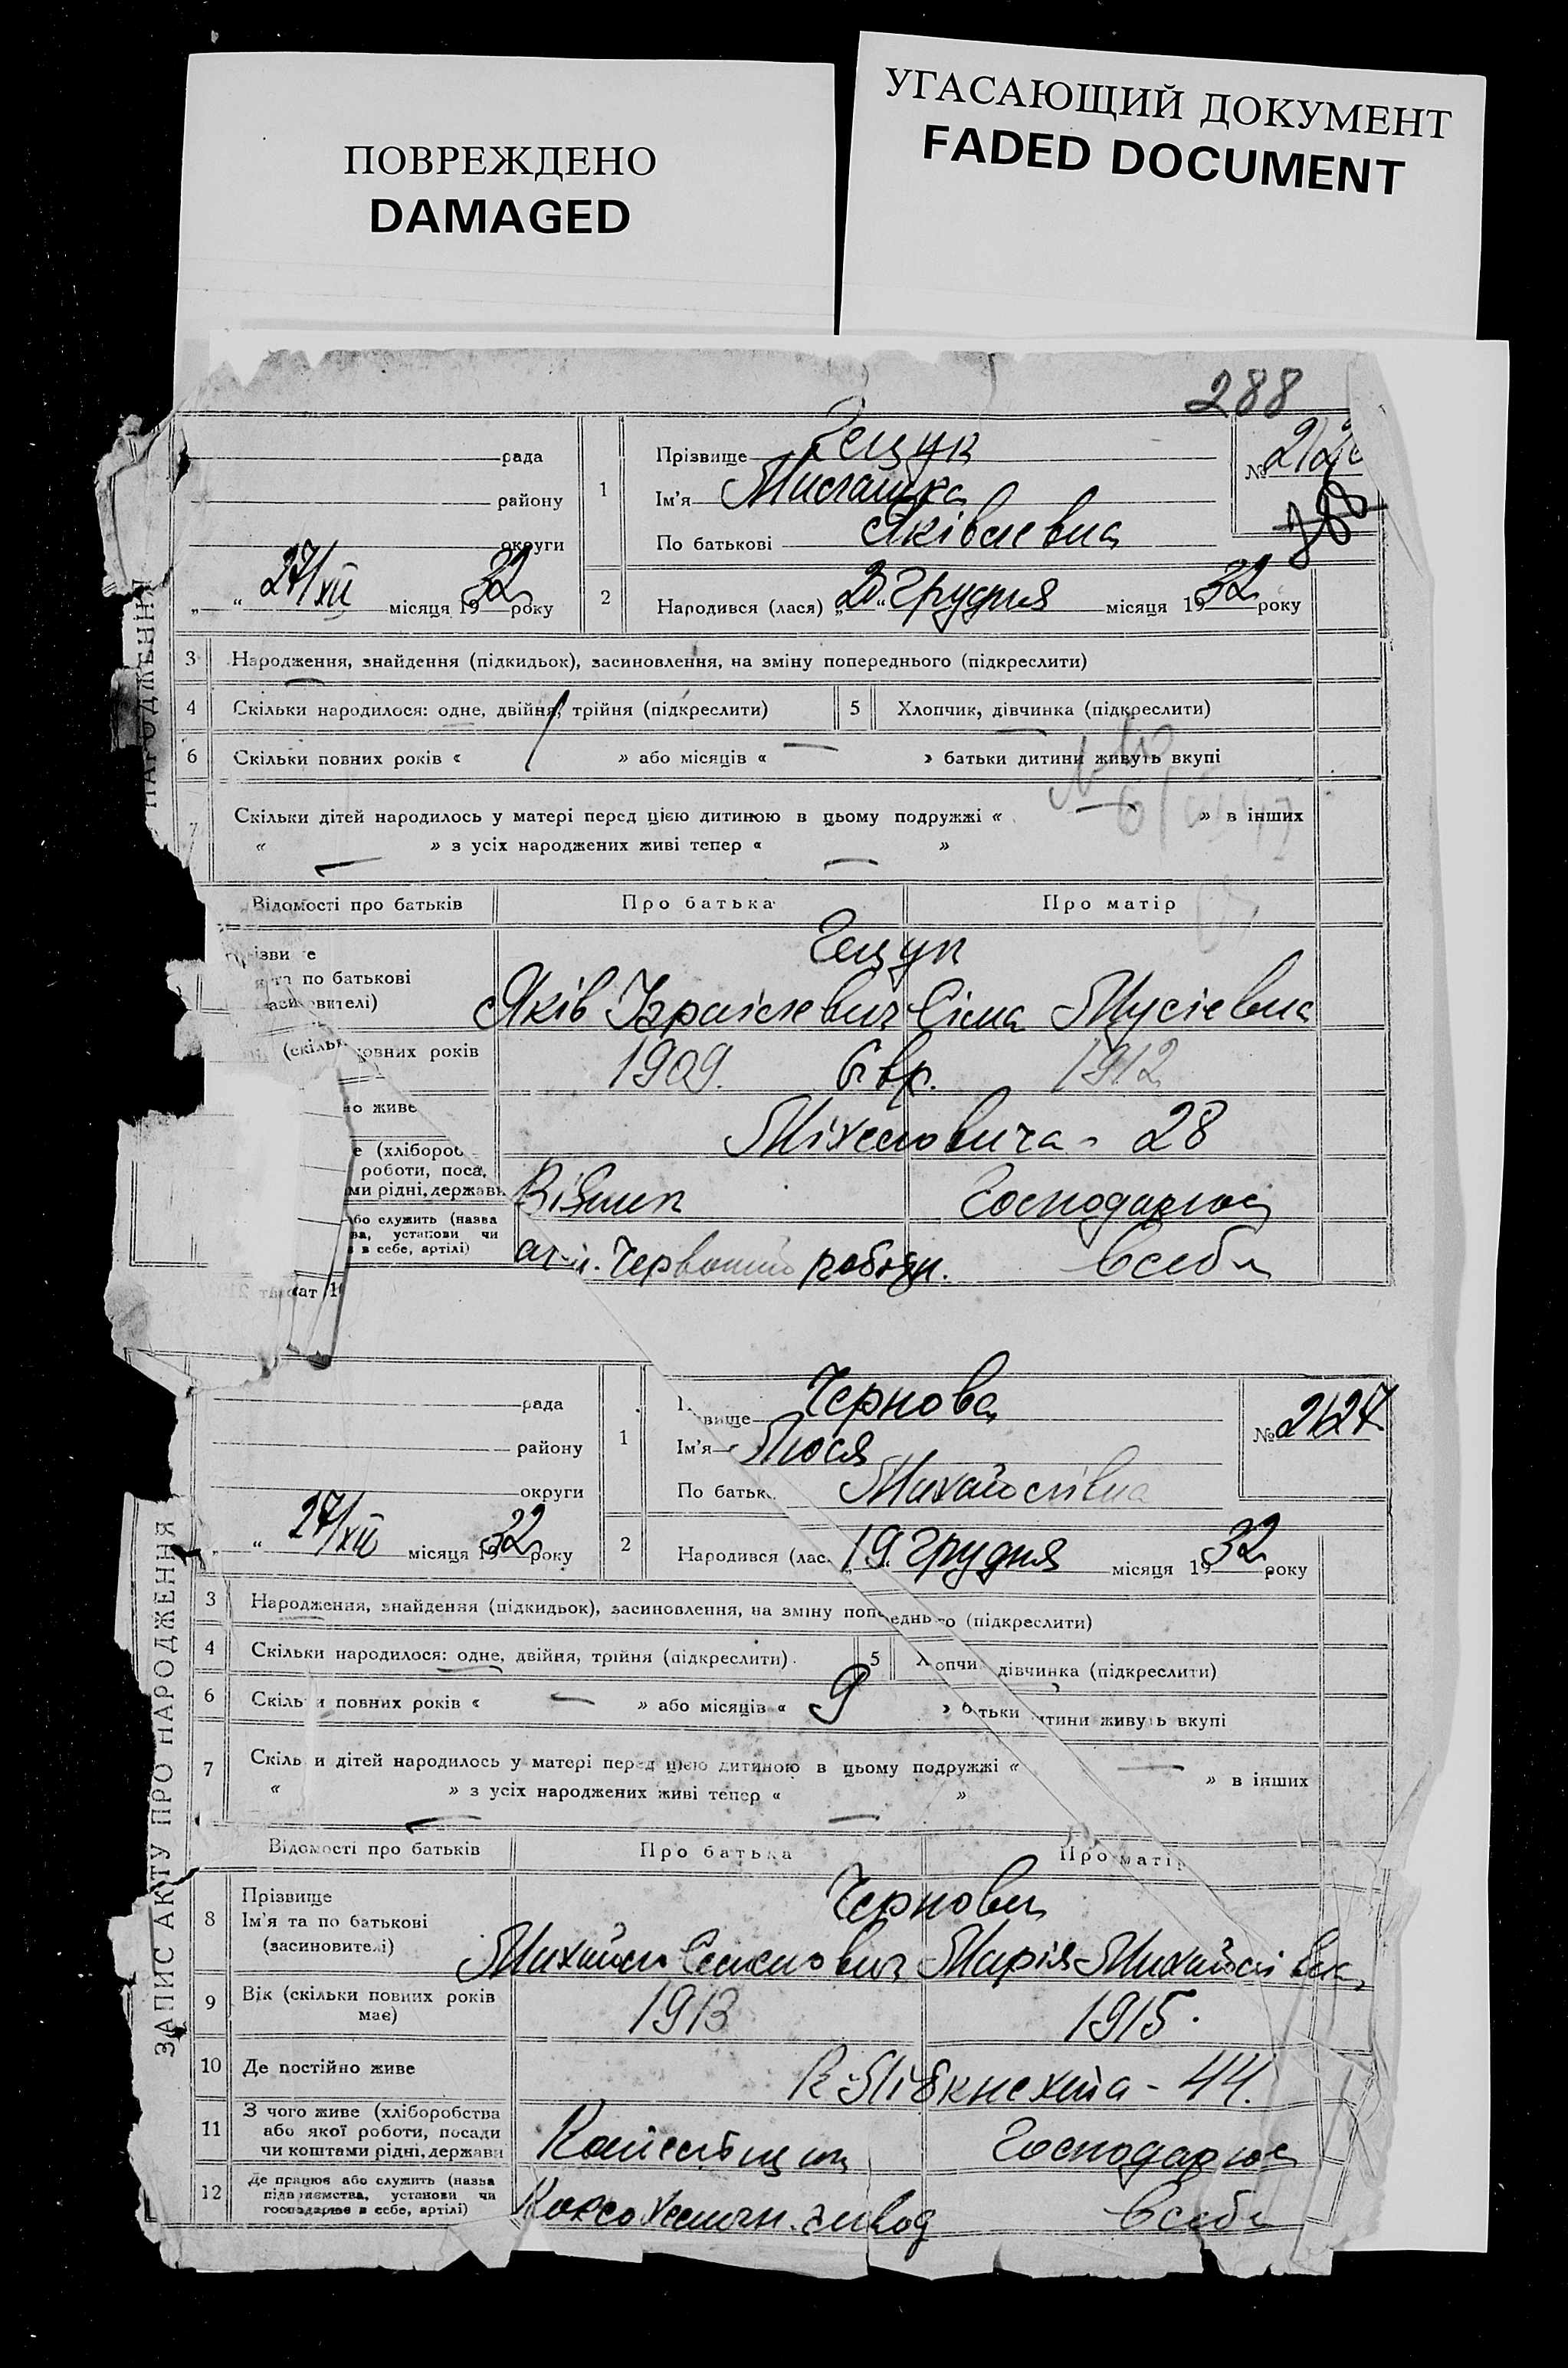 ПОВРЕЖДЕНО
DAMAGED
УГАСАЮЩИЙ ДОКУМЕНТ
FADED DOCUMENT
288
рада
району
округи
„ “ 27/XII місяця 1932 року
1
Прізвище
Ім'я
По батькові Яківлевна
№ 212
2
Народився (лася) „20“ грудня місяця 1932 року
НАРОДЖЕННЯ
3 Народження, знайдення (підкидьок), засиновлення, на зміну попереднього (підкреслити)
4 Скільки народилося: одне, двійня, трійня (підкреслити) 5 Хлопчик, дівчинка (підкреслити)
6 Скільки повних років « 1 » або місяців « — » батьки дитини живуть вкупі
7 Скільки дітей народилось у матері перед цією дитиною в цьому подружжі « — » в інших
« — » з усіх народжених живі тепер « — »
Відомості про батьків Про батька Про матір
та по батькові
Яків Ізраілевич Сіма Мусіевна
(скільки повних років
1909. Євр. 1912
живе
Міхеловича - 28
(хлібороб
роботи, поса
ми рідні, держави
Господарює
або служить (назва
ва, установи чи
в себе, артілі)
Червоний
в себе
Чернова
рада
району
округи
„ “ 27/XII місяця 1932 року
1
Ім'я Люся
По батьк Михайлівна
№ 2127
2
Народився (лас 19 грудня місяця 1932 року
ЗАПИС АКТУ ПРО НАРОДЖЕННЯ
3 Народження, знайдення (підкидьок), засиновлення, на зміну попереднього (підкреслити)
4 Скільки народилося: одне, двійня, трійня (підкреслити) 5 Хлопчи дівчинка (підкреслити)
6 Скільки повних років « — » або місяців « 9 » батьки дитини живуть вкупі
7 Скільки дітей народилось у матері перед цією дитиною в цьому подружжі « — » в інших
« — » з усіх народжених живі тепер « — »
Відомості про батьків Про батька Про матір
8 Прізвище
Ім'я та по батькові
(засновителі)
Чернови
Михайло Семенович Марія Михайлівна
9 Вік (скільки повних років
має)
1913 1915.
10 Де постійно живе
К-Лібкнехта - 44.
11 З чого живе (хліборобства
або якої роботи, посади
чи коштами рідні, держави
Господарює
12 Де працює або служить (назва
підприємства, установи чи
господарює в себе, артілі)
Коксохемичн. завод в себе